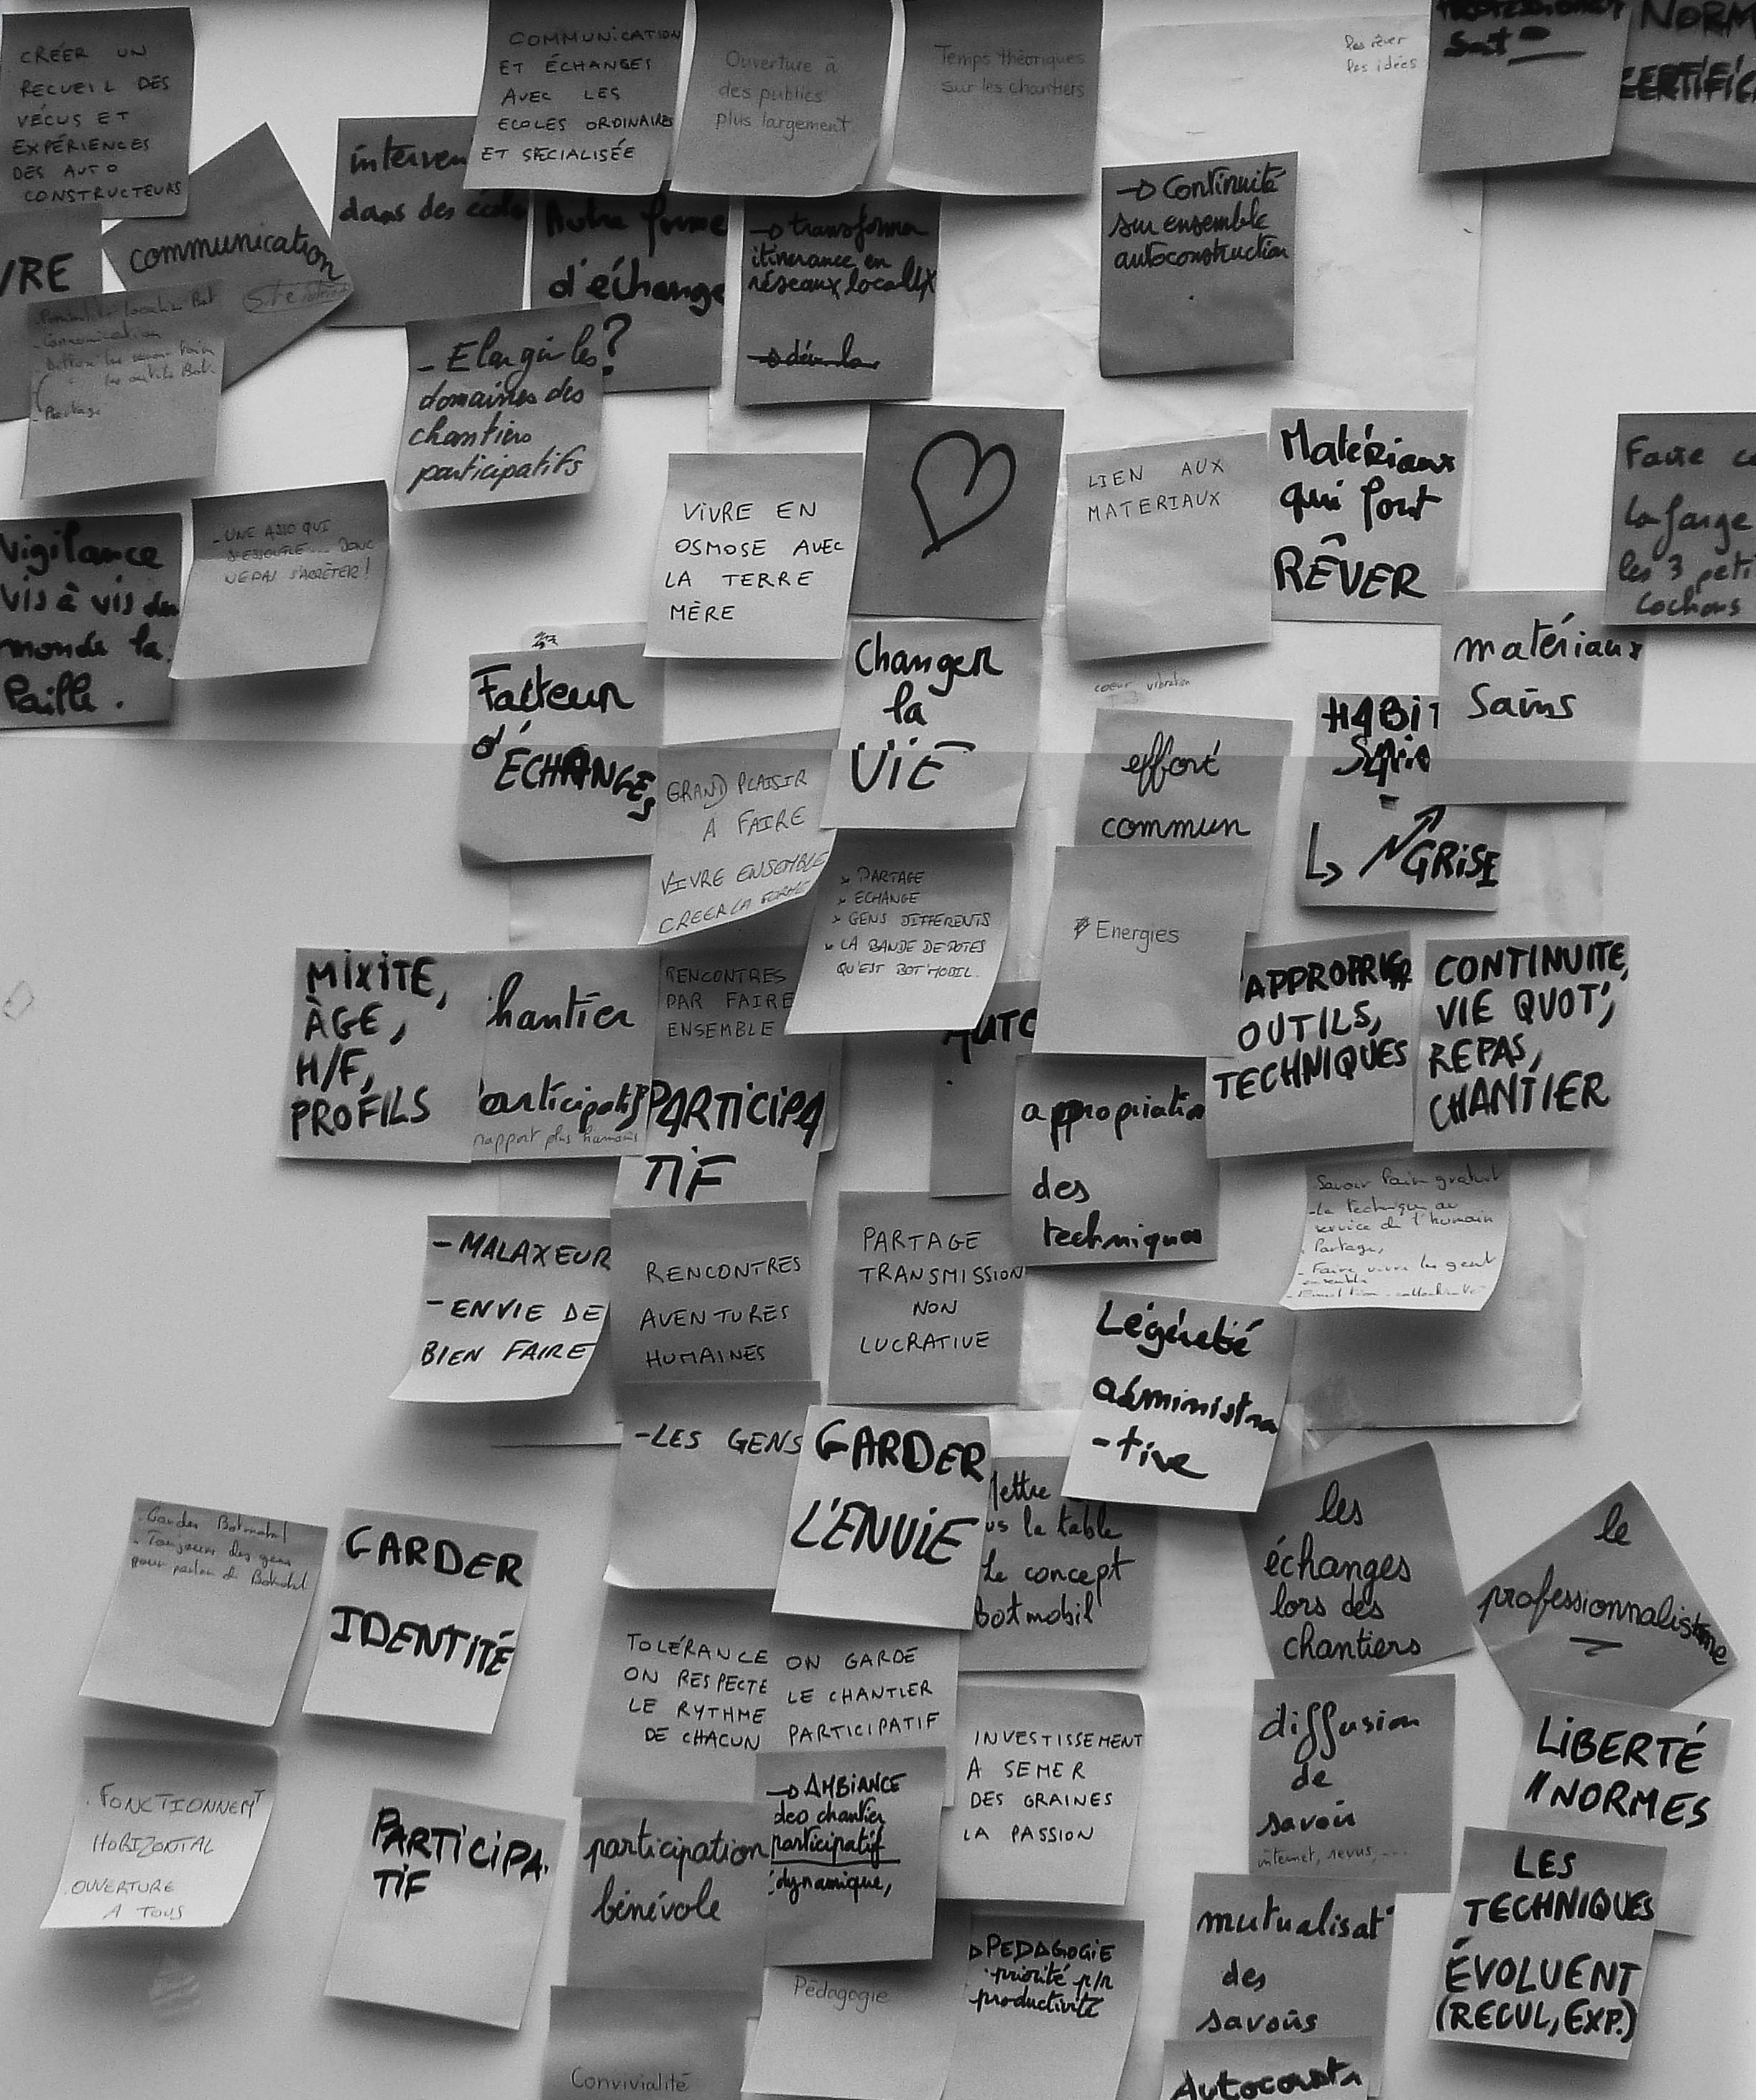 CRÉER UN
RECUEIL DES
VÉCUS ET
EXPÉRIENCES
DES AUTO
CONSTRUCTEURS
COMMUNICATION
ET ÉCHANGES
AVEC LES
ECOLES ORDINAIRES
ET SPECIALISÉE
Ouverture à
des publics
plus largement
Temps théoriques
sur les chantiers
les rêver
les idées
NORM
CERTIFIC
communication
Site
interven
dans des écol
Autre forme
d'échange
?
→ transformer
itinérance en
réseaux locaux
→ Continuité
sur ensemble
autoconstruction
VRE
- Communication
- Partage
- Elargir les
domaines des
chantiers
participatifs
Vigilance
vis à vis du
monde la
Paille.
- UNE ASSO QUI
S'ESSOUFLE... DONC
NE PAS S'ARRÊTER!
VIVRE EN
OSMOSE AVEC
LA TERRE
MÈRE
LIEN AUX
MATERIAUX
Matériaux
qui font
RÊVER
Faire c
Lafarge
les 3 peti
cochons
matériaux
Sains
Facteur
d'ÉCHANGES
Changer
la
VIE
coeur vibration
effort
commun
HABIT
SAIN
GRISE
GRAND PLAISIR
A FAIRE
VIVRE ENSEMBLE
CREER LA FORME
PARTAGE
ECHANGE
GENS DIFFERENTS
LA BANDE DE POTES
QU'EST BOT'MOBIL.
Energies
MIXITE,
ÂGE,
H/F,
PROFILS
hantier
participatif
rapport plus humains
RENCONTRES
PAR FAIRE
ENSEMBLE
PARTICIPA
TIF
AUTO
appropriatio
des
techniques
'APPROPRIER
OUTILS,
TECHNIQUES
CONTINUITE,
VIE QUOT',
REPAS,
CHANTIER
Savoir faire gratuit
- La technique au
service de l'humain
- Partage,
- Faire vivre les gens
ensemble
- MALAXEUR
- ENVIE DE
BIEN FAIRE
RENCONTRES
AVENTURES
HUMAINES
PARTAGE
TRANSMISSION
NON
LUCRATIVE
Légèreté
administra
-tive
- LES GENS
GARDER
L'ENVIE
ettre
us la table
le concept
Botmobil
les
échanges
lors des
chantiers
le
professionnalisme
. Garder Botmobil
- Toujours des gens
pour parler de Botmobil
GARDER
IDENTITÉ
TOLÉRANCE
ON RESPECTE
LE RYTHME
DE CHACUN
ON GARDE
LE CHANTIER
PARTICIPATIF
INVESTISSEMENT
A SEMER
DES GRAINES
LA PASSION
diffusion
de
savoir
internet, revus, ...
LIBERTÉ
// NORMES
. FONCTIONNEMT
HORIZONTAL
. OUVERTURE
A TOUS
PARTICIPA.
TIF
participation
bénévole
→ AMBIANCE
des chantier
participatif
dynamique,
LES
TECHNIQUES
ÉVOLUENT
(RECUL, EXP.)
mutualisat°
des
savoirs
Pédagogie
PEDAGOGIE
priorité p/r
productivité
Convivialité
Autoconst